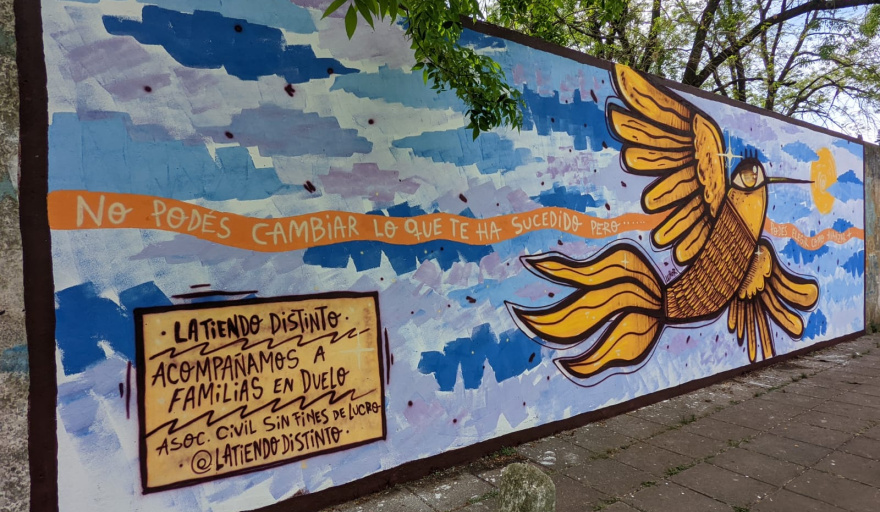 No PODÉS CAMBIAR LO QUE TE HA SUCEDIDO PERO.....
LATIENDO DISTINTO
ACOMPAÑAMOS A
FAMILIAS EN DUELO
ASOC. CIVIL SIN FINES DE LUCRO
@LATIENDO DISTINTO